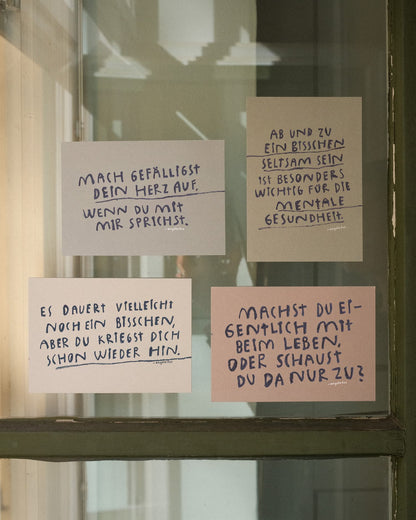 MACH GEFÄLLIGST
DEIN HERZ AUF,
WENN DU MIT
MIR SPRICHST.
AB UND ZU
EIN BISSCHEN
SELTSAM SEIN
IST BESONDERS
WICHTIG FÜR DIE
MENTALE
GESUNDHEIT.
ES DAUERT VIELLEICHT
NOCH EIN BISSCHEN,
ABER DU KRIEGST DICH
SCHON WIEDER HIN.
MACHST DU EI-
GENTLICH MIT
BEIM LEBEN,
ODER SCHAUST
DU DA NUR ZU?